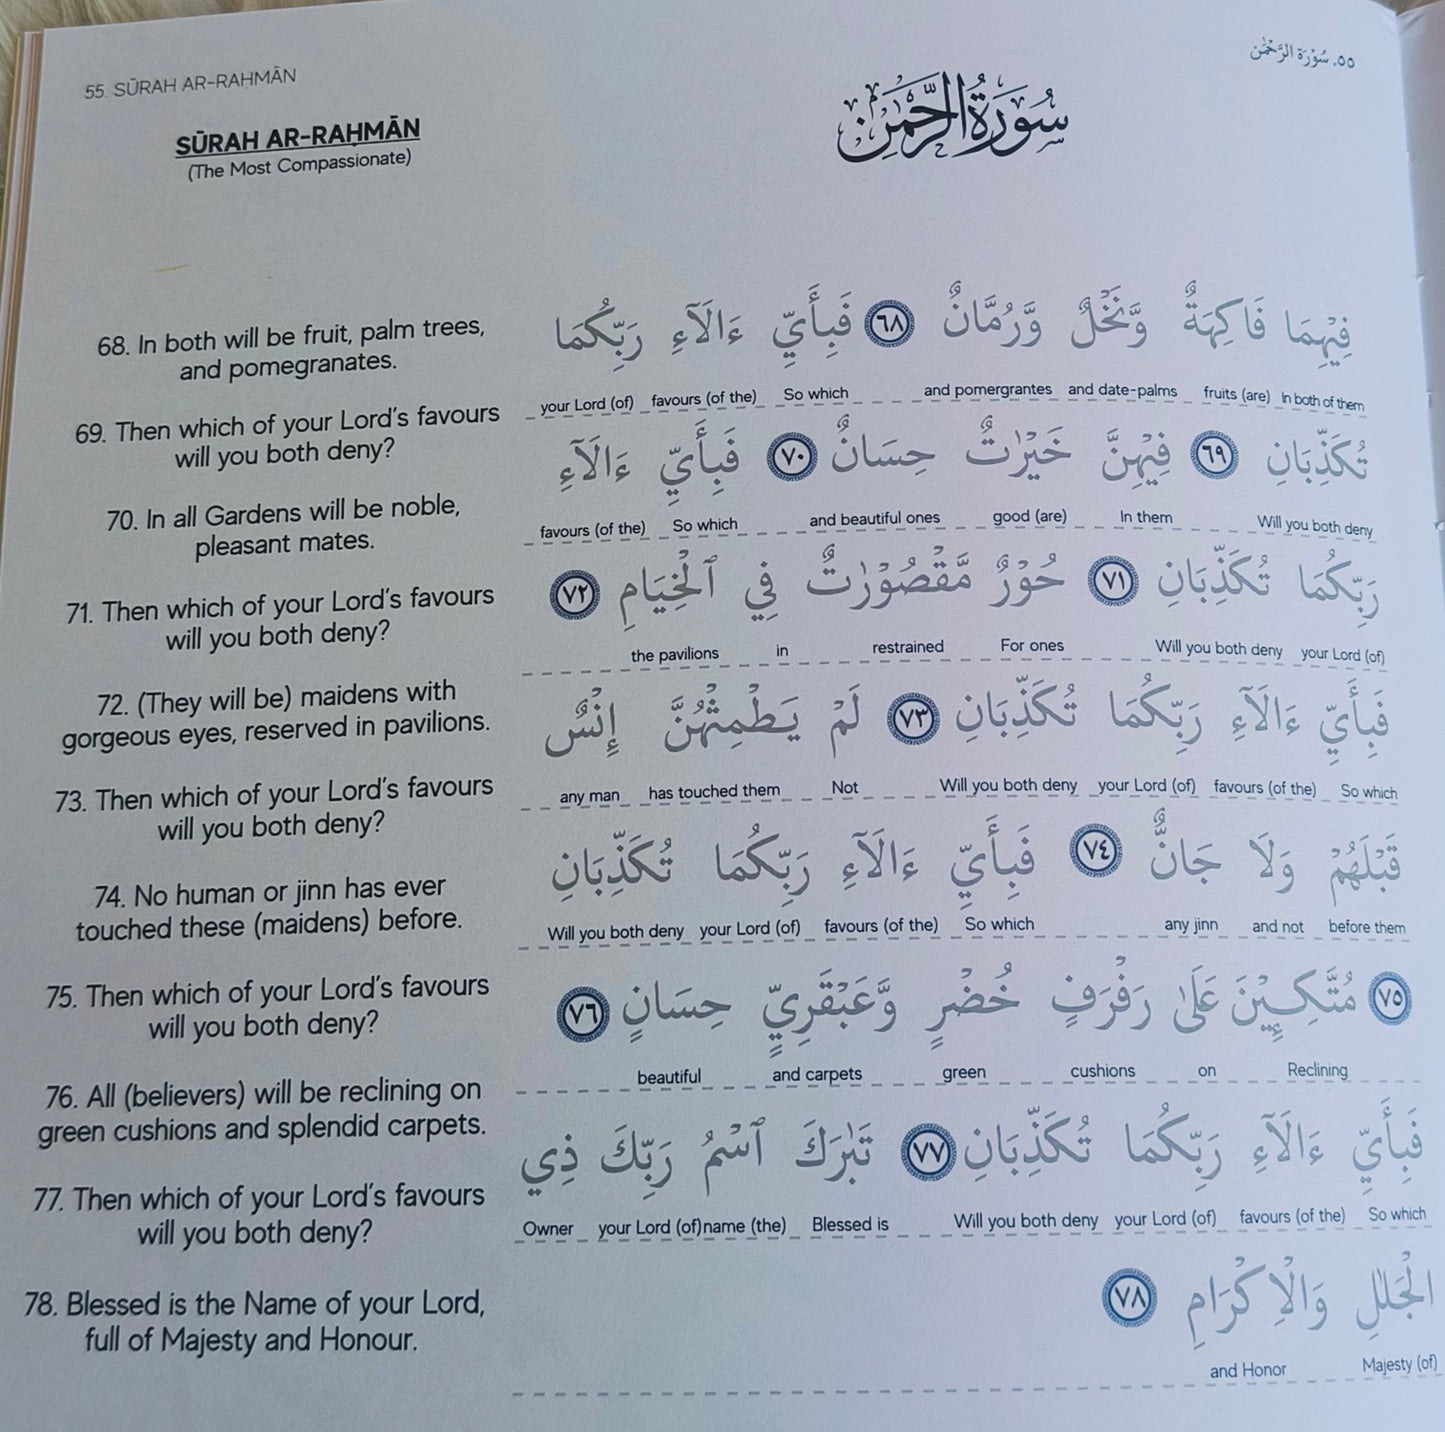 55. SŪRAH AR-RAḤMĀN
٥٥. سُوْرَة الرَّحْمٰن
SŪRAH AR-RAḤMĀN
(The Most Compassionate)
سُوْرَةُ الرَّحْمٰن
68. In both will be fruit, palm trees,
and pomegranates.
69. Then which of your Lord's favours
will you both deny?
70. In all Gardens will be noble,
pleasant mates.
71. Then which of your Lord's favours
will you both deny?
72. (They will be) maidens with
gorgeous eyes, reserved in pavilions.
73. Then which of your Lord's favours
will you both deny?
74. No human or jinn has ever
touched these (maidens) before.
75. Then which of your Lord's favours
will you both deny?
76. All (believers) will be reclining on
green cushions and splendid carpets.
77. Then which of your Lord's favours
will you both deny?
78. Blessed is the Name of your Lord,
full of Majesty and Honour.
فِيْهِمَا فَاكِهَةٌ وَّنَخْلٌ وَّرُمَّانٌ ٦٨ فَبِأَيِّ ءَالَآءِ رَبِّكُمَا
your Lord (of) favours (of the) So which and pomergrantes and date-palms fruits (are) In both of them
تُكَذِّبَانِ ٦٩ فِيْهِنَّ خَيْرٰتٌ حِسَانٌ ٧٠ فَبِأَيِّ ءَالَآءِ
favours (of the) So which and beautiful ones good (are) In them Will you both deny
رَبِّكُمَا تُكَذِّبَانِ ٧١ حُوْرٌ مَّقْصُوْرٰتٌ فِي ٱلْخِيَامِ ٧٢
the pavilions in restrained For ones Will you both deny your Lord (of)
فَبِأَيِّ ءَالَآءِ رَبِّكُمَا تُكَذِّبَانِ ٧٣ لَمْ يَطْمِثْهُنَّ إِنْسٌ
any man has touched them Not Will you both deny your Lord (of) favours (of the) So which
قَبْلَهُمْ وَلَا جَانٌّ ٧٤ فَبِأَيِّ ءَالَآءِ رَبِّكُمَا تُكَذِّبَانِ
Will you both deny your Lord (of) favours (of the) So which any jinn and not before them
٧٥ مُتَّكِـِٕيْنَ عَلَىٰ رَفْرَفٍ خُضْرٍ وَّعَبْقَرِيٍّ حِسَانٍ ٧٦
beautiful and carpets green cushions on Reclining
فَبِأَيِّ ءَالَآءِ رَبِّكُمَا تُكَذِّبَانِ ٧٧ تَبٰرَكَ ٱسْمُ رَبِّكَ ذِي
Owner your Lord (of) name (the) Blessed is Will you both deny your Lord (of) favours (of the) So which
الْجَلٰلِ وَالْاِكْرَامِ ٧٨
and Honor Majesty (of)